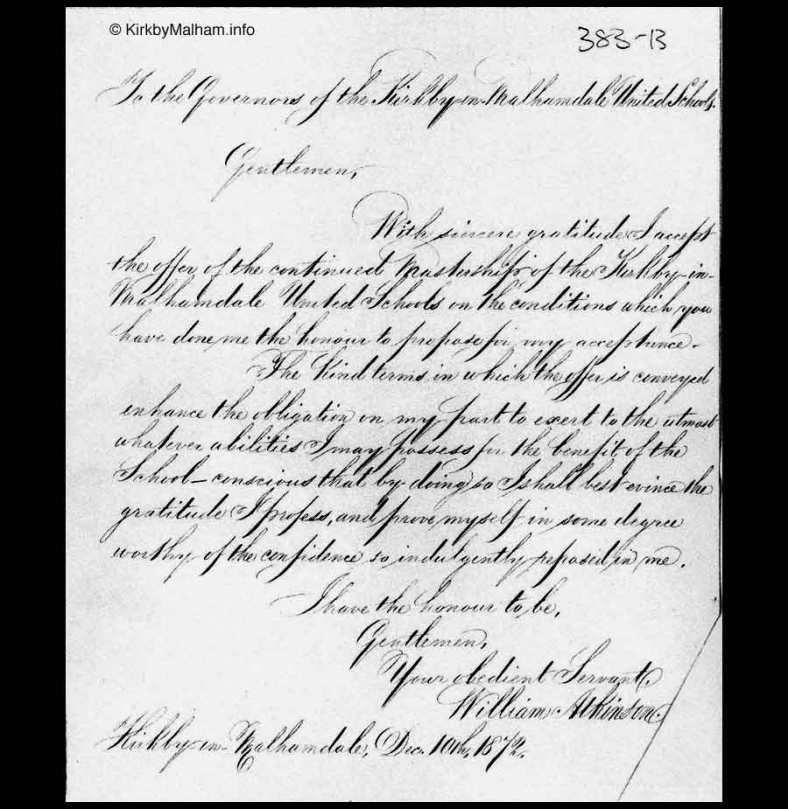 © KirkbyMalham.info
383-B
To the Governors of the Kirkby-in-Malhamdale United Schools.
Gentlemen,
With sincere gratitude I accept
the offer of the continued Mastership of the Kirkby-in-
Malhamdale United Schools on the conditions which you
have done me the honour to propose for my acceptance.
The kind terms in which the offer is conveyed
enhance the obligation on my part to exert to the utmost
whatever abilities I may possess for the benefit of the
School – conscious that by doing so I shall best evince the
gratitude I profess, and prove myself in some degree
worthy of the confidence so indulgently reposed in me.
I have the honour to be,
Gentlemen,
Your obedient Servant,
William Atkinson.
Kirkby-in-Malhamdale, Dec. 10th, 1872.